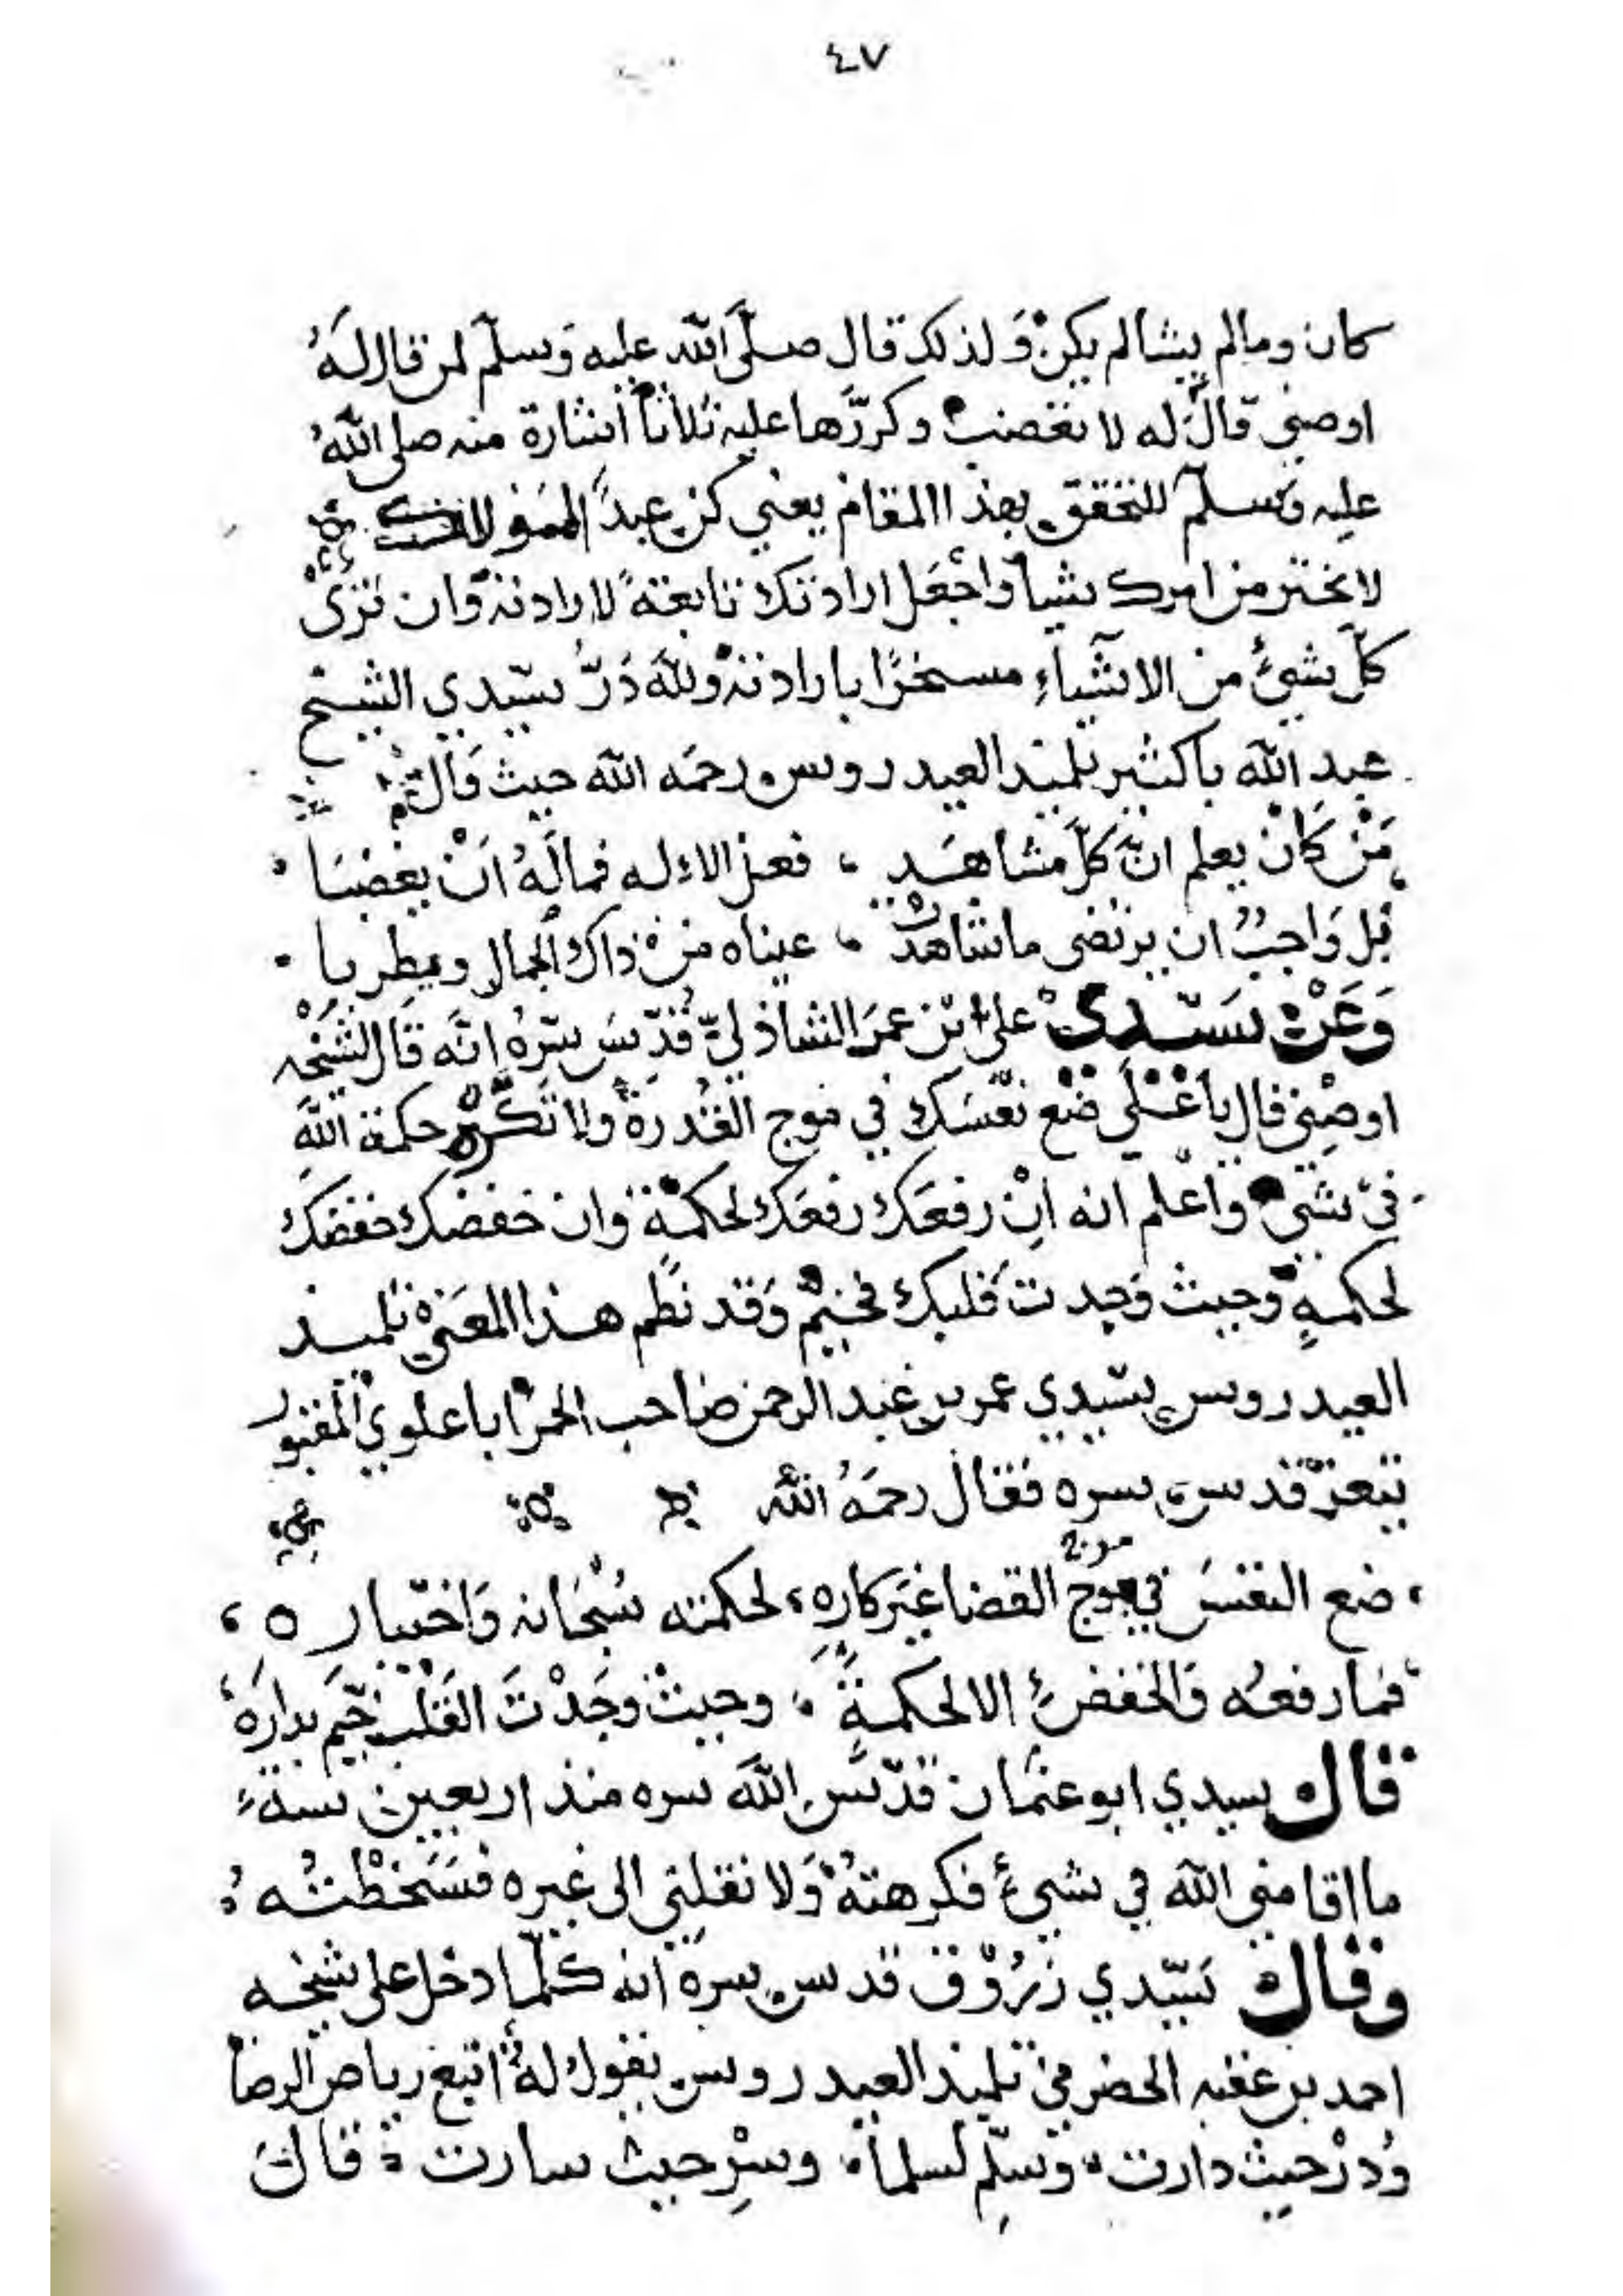 ٤٧
كان وما لم يشا لم يكن ولذلك قال صلَّى الله عليه وَسلّم لمن قال لَهُ
اوصني قالَ له لا تغضب وكررَّها عليه ثلاثاً اشارة منه صلى اللهُ
عليه وَسلّم للتحقق بهذا المقام يعني كن عبداً
لا تختر من امرك شيأ وَاجْعَل ارادتك تابعَة لارادته وَان ترَى
كلّ شيئٍ من الاشيآءِ مسخرًا بارادته وللهَ دَرُّ سيّدي الشيخ
عبد الله باكثير تلميذ العيدروس رحمَه الله حيث قال
مَنْ كَانْ يعلم انَّ كلَّ مشاهَدٍ ، فعل الاله فمالَهُ اَنْ يغضبَا
بل وَاجبٌ ان يرتضى ما شاهدت ، عيناه منْ ذاك الجمال ويطربا
وَعَنْ سَيّدي على ابن عمَر الشاذليّ قُدّسَ سِرّهُ انَّه قَال لشَيْخه
اوصِني قال يا عَلي ضَع نفْسَك في موج القُدرَة ولا تكره حكمة اللهَ
في شئ واعْلم انه اِنْ رفعَك رفعَك لحكمَة وان خفضك خفضك
لحكمةٍ وَحيث وَجدت قلبك فخيّم وَقد نظم هذا المعَنى تلميذ
العيدروس سيّدي عمر بن عَبد الرحمن صَاحب الحمرا باعلوي المقبور
بتعزّ قدس سره فقال رحمَهُ الله
ضع النفسَ في موج القضا غيَر كارهٍ ، لحكمته سُبْحَانه وَاختياره ،
فما رفعُه وَالخفضُ الا لحكمةٍ ، وحيثْ وجَدْتَ القَلْب خيّم بدارَه
قال سيدي ابو عثمان قدّسَ اللهَ سره منذ اربعين سنة
ما اقامني الله في شيئٍ فكرهتهُ وَلا نقلني الى غيره فسَخَطْتُه
وقال سَيّدي زَرُوْق قدس سره انه كلّما دخل على شيخه
احمد بن عقبه الحضرمي تلميذ العيدروس يقول لهُ اتبع رياح الرضا
وُدرْ حيث دارت وَسَلّم لسلما ، وسِرْ حيث سارت قال